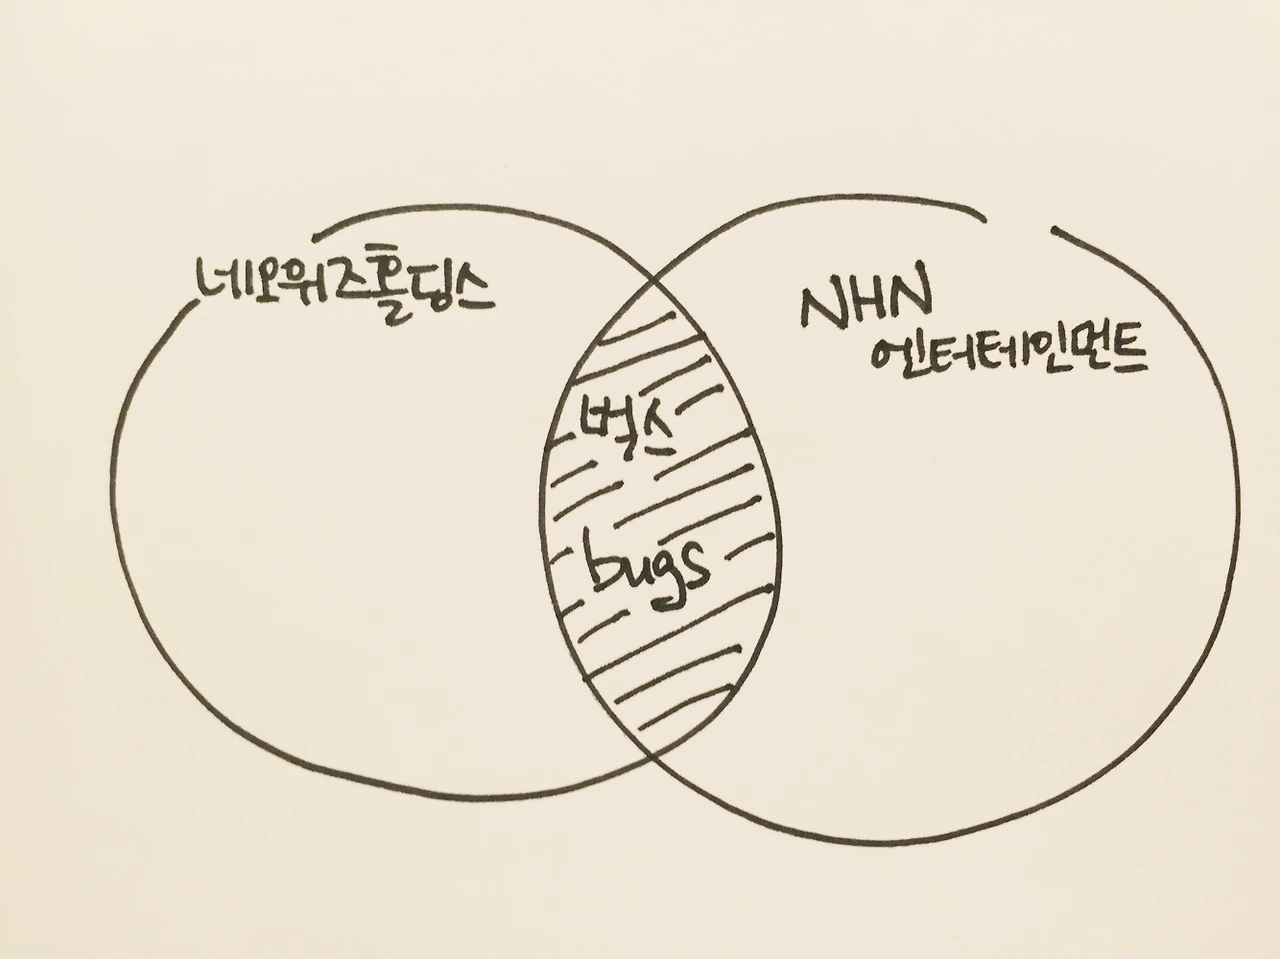 네오위즈홀딩스
NHN
엔터테인먼트
벅스
bugs